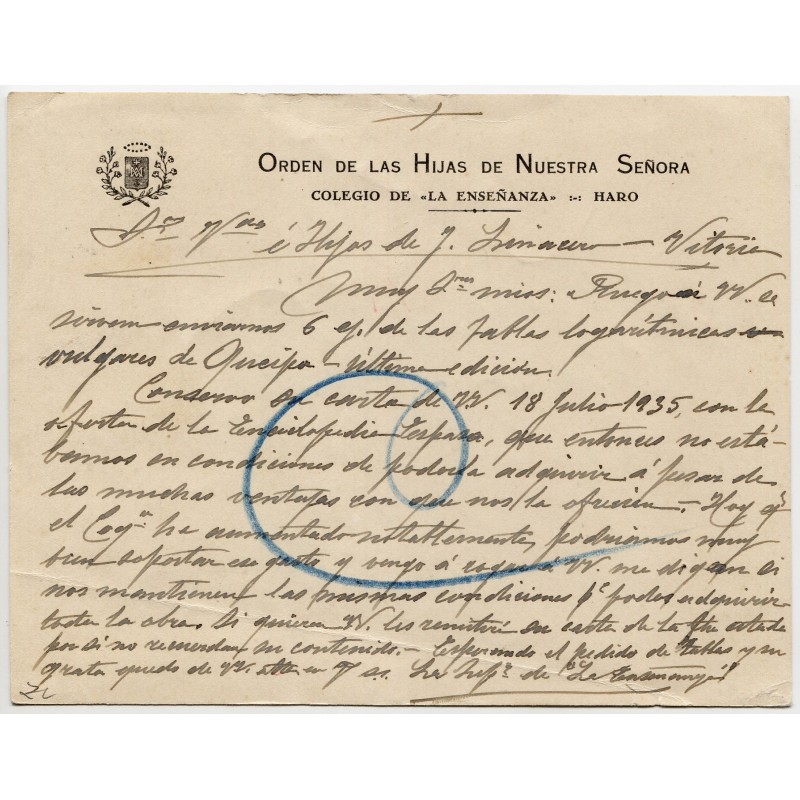 ORDEN DE LAS HIJAS DE NUESTRA SEÑORA
COLEGIO DE «LA ENSEÑANZA» :-: HARO
Sres Vda é Hijos de J. Liñacero - Vitoria
Muy Sres mios: Ruego á VV. se
sirvan enviarnos 6 ej. de las tablas logarítmicas
vulgares de Queipo - última edición.
Conservo su carta de VV. 18 Julio 1935, con la
oferta de la Enciclopedia Espasa, que entonces no está-
bamos en condiciones de poderla adquirir á pesar de
las muchas ventajas con que nos la ofrecían. - Hoy q
el Cog ha aumentado notablemente, podríamos muy
bien soportar ese gasto y vengo á rogar á VV. me digan si
nos mantienen las mismas condiciones pa poder adquirir
toda la obra. Si quieren VV. les remitiré su carta de la fha citada
por si no recuerdan su contenido. - Esperando el pedido de tablas y su
grata quedo de VV. atta en J. s.s. La Supra de "La Enseñanza"